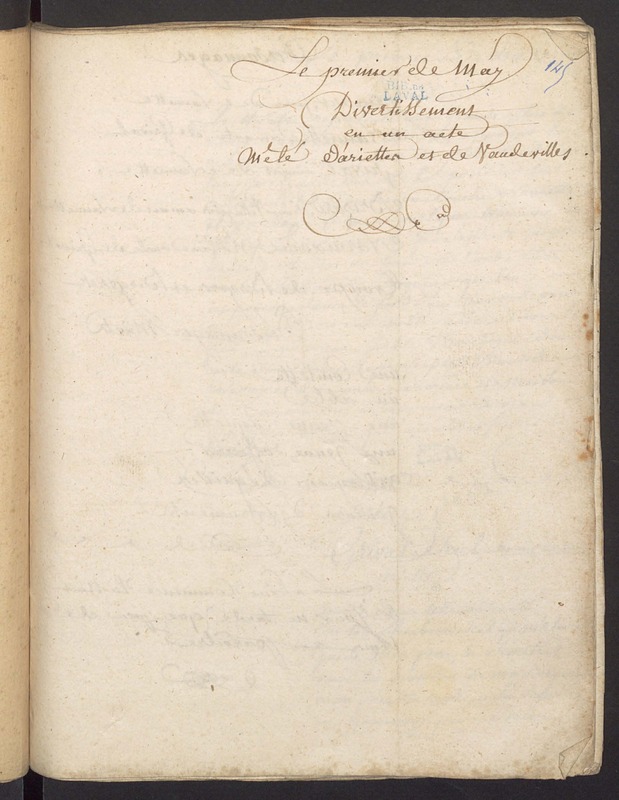 Le premier de May
145
BIB. DE
LAVAL
Divertissement
en un acte
Mêlé d'ariettes et de Vaudevilles